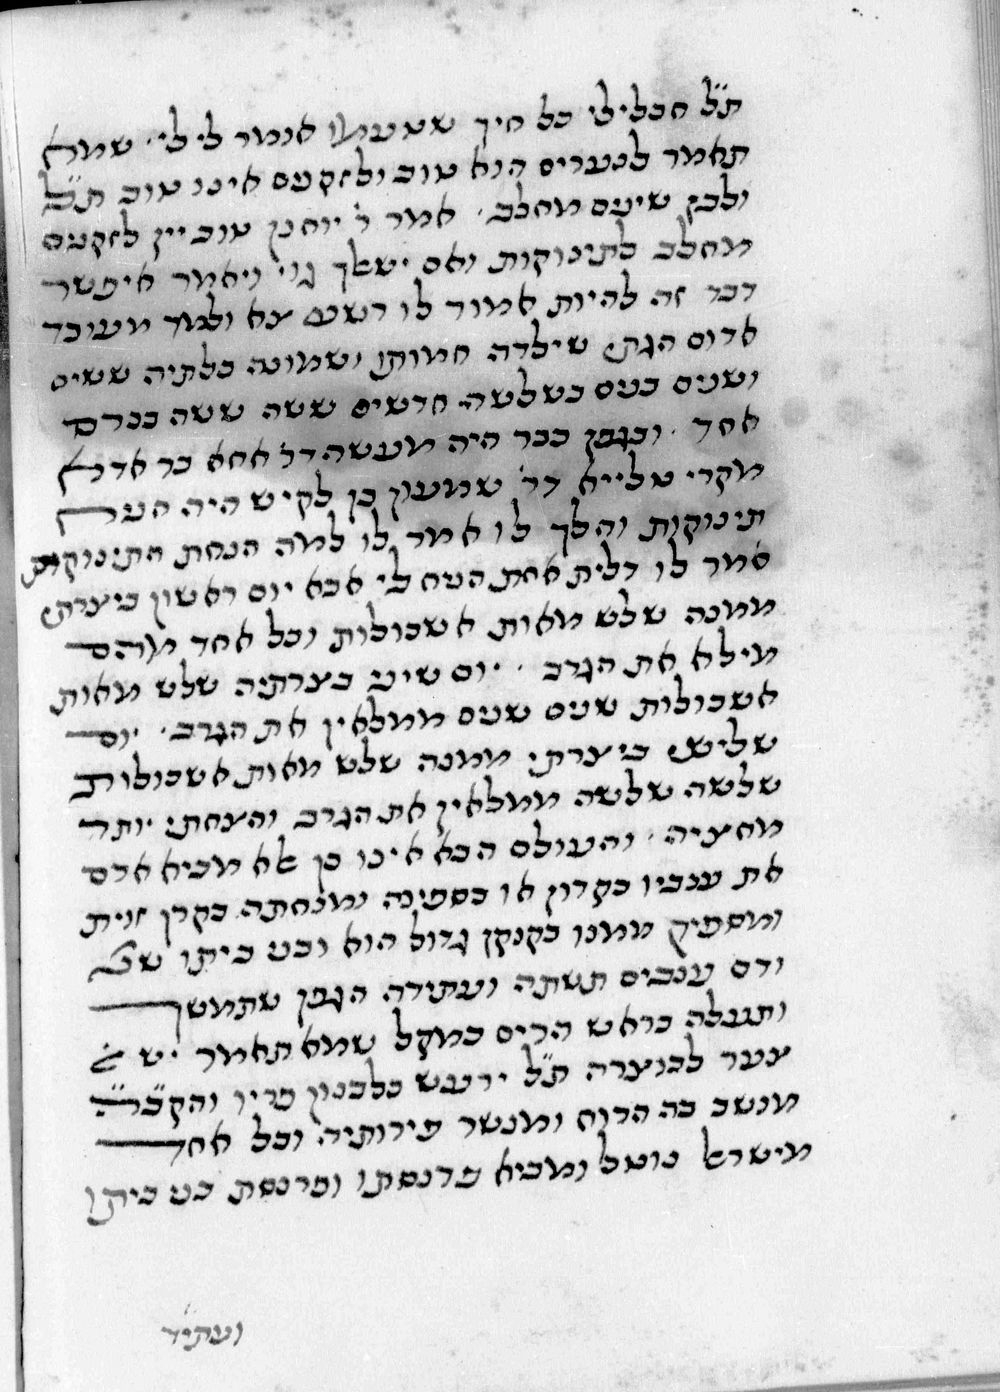 ת״ל חכלילי כל חיך שטעמו אומר לי לי׳ שמא
תאמר לנערים הוא טוב ולזקנים אינו טוב ת״ל
ולבן שינים מחלב׳ אמר ר׳ יוחנן טוב יין לזקנים
מחלב לתינוקות ואם ישאלך גוי ויאמר איפשר
דבר זה להיות אמור לו רשע צא ולמד מעובד
אדום הגתי שילדה חמותו ושמונה כלתיה ששים
ושנים בנים בשלשה חדשים ששה ששה בכרס
אחד ׳ ובגפן כבר היה מעשה דר אחא בר אדא
מקרי טלייא דר׳ שמעון בן לקיש היה הניח
תינוקות והלך לו אמר לו למה הנחת התינוקות
אמר לו דלית אחת הניח לי אבא יום ראשון ביצרתי
ממנה שלש מאות אשכולות וכל אחד מהם
מילא את הגרב ׳ יום שיני בצרתיה שלש מאות
אשכולות שנים שנים ממלאין את הגרב׳ יום
שלישי ביצרתי ממנה שלש מאות אשכולות
שלשה שלשה ממלאין את הגרב והנחתי יותר
מחציה ׳ והעולם הבא אינו כן אלא מביא אדם
את ענביו בקרון או בספינה ומנחתה בקרן זוית
ומספיק ממנו כקנקן גדול הוא ובני ביתו שנ׳
ודם ענבים תשתה ועתידה הגפן שתמשך
ותעלה בראש הרים כמקל שמא תאמר יש
צער לבוצרה ת״ל ירעש כלבנון פריו והקב״ה
מנשב בה הרוח ומנשר פירותיה וכל אחד
מישראל נוטל ומביא פרנסתו ופרנסת בני ביתו
ועתיד